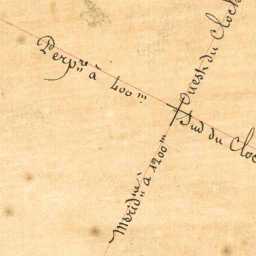 Perp.re à 400m.
Ouest du Cloch
Sud du Cloc
Mérid.ne à 1200m.